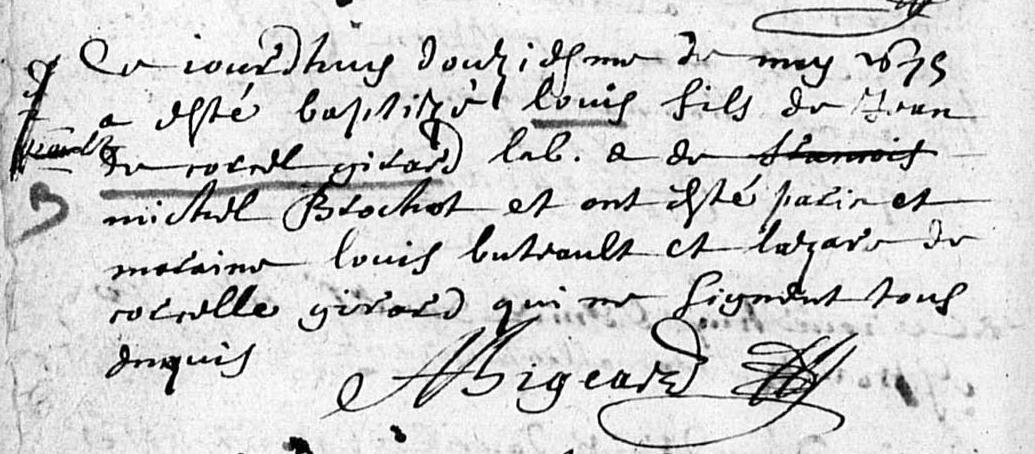 Ce iourdhuy douziesme de may 1675
a esté baptizé louis fils de Jean
de corcel girard lab. & de francois
michel Brochot et ont esté parin et
maraine louis buteault et lazare de
corcelle girard qui ne signent tous
enquis
ABigeard